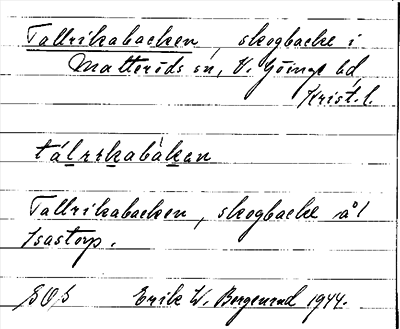 Tallrikabacken, skogbacke i
Matteröds sn, V. Göinge hd,
Krist. l.
tálrrkabàken
Tallrikabacken, skogbacke å 1
Isastorp.
SOS Erik W. Bergenrud 1944.